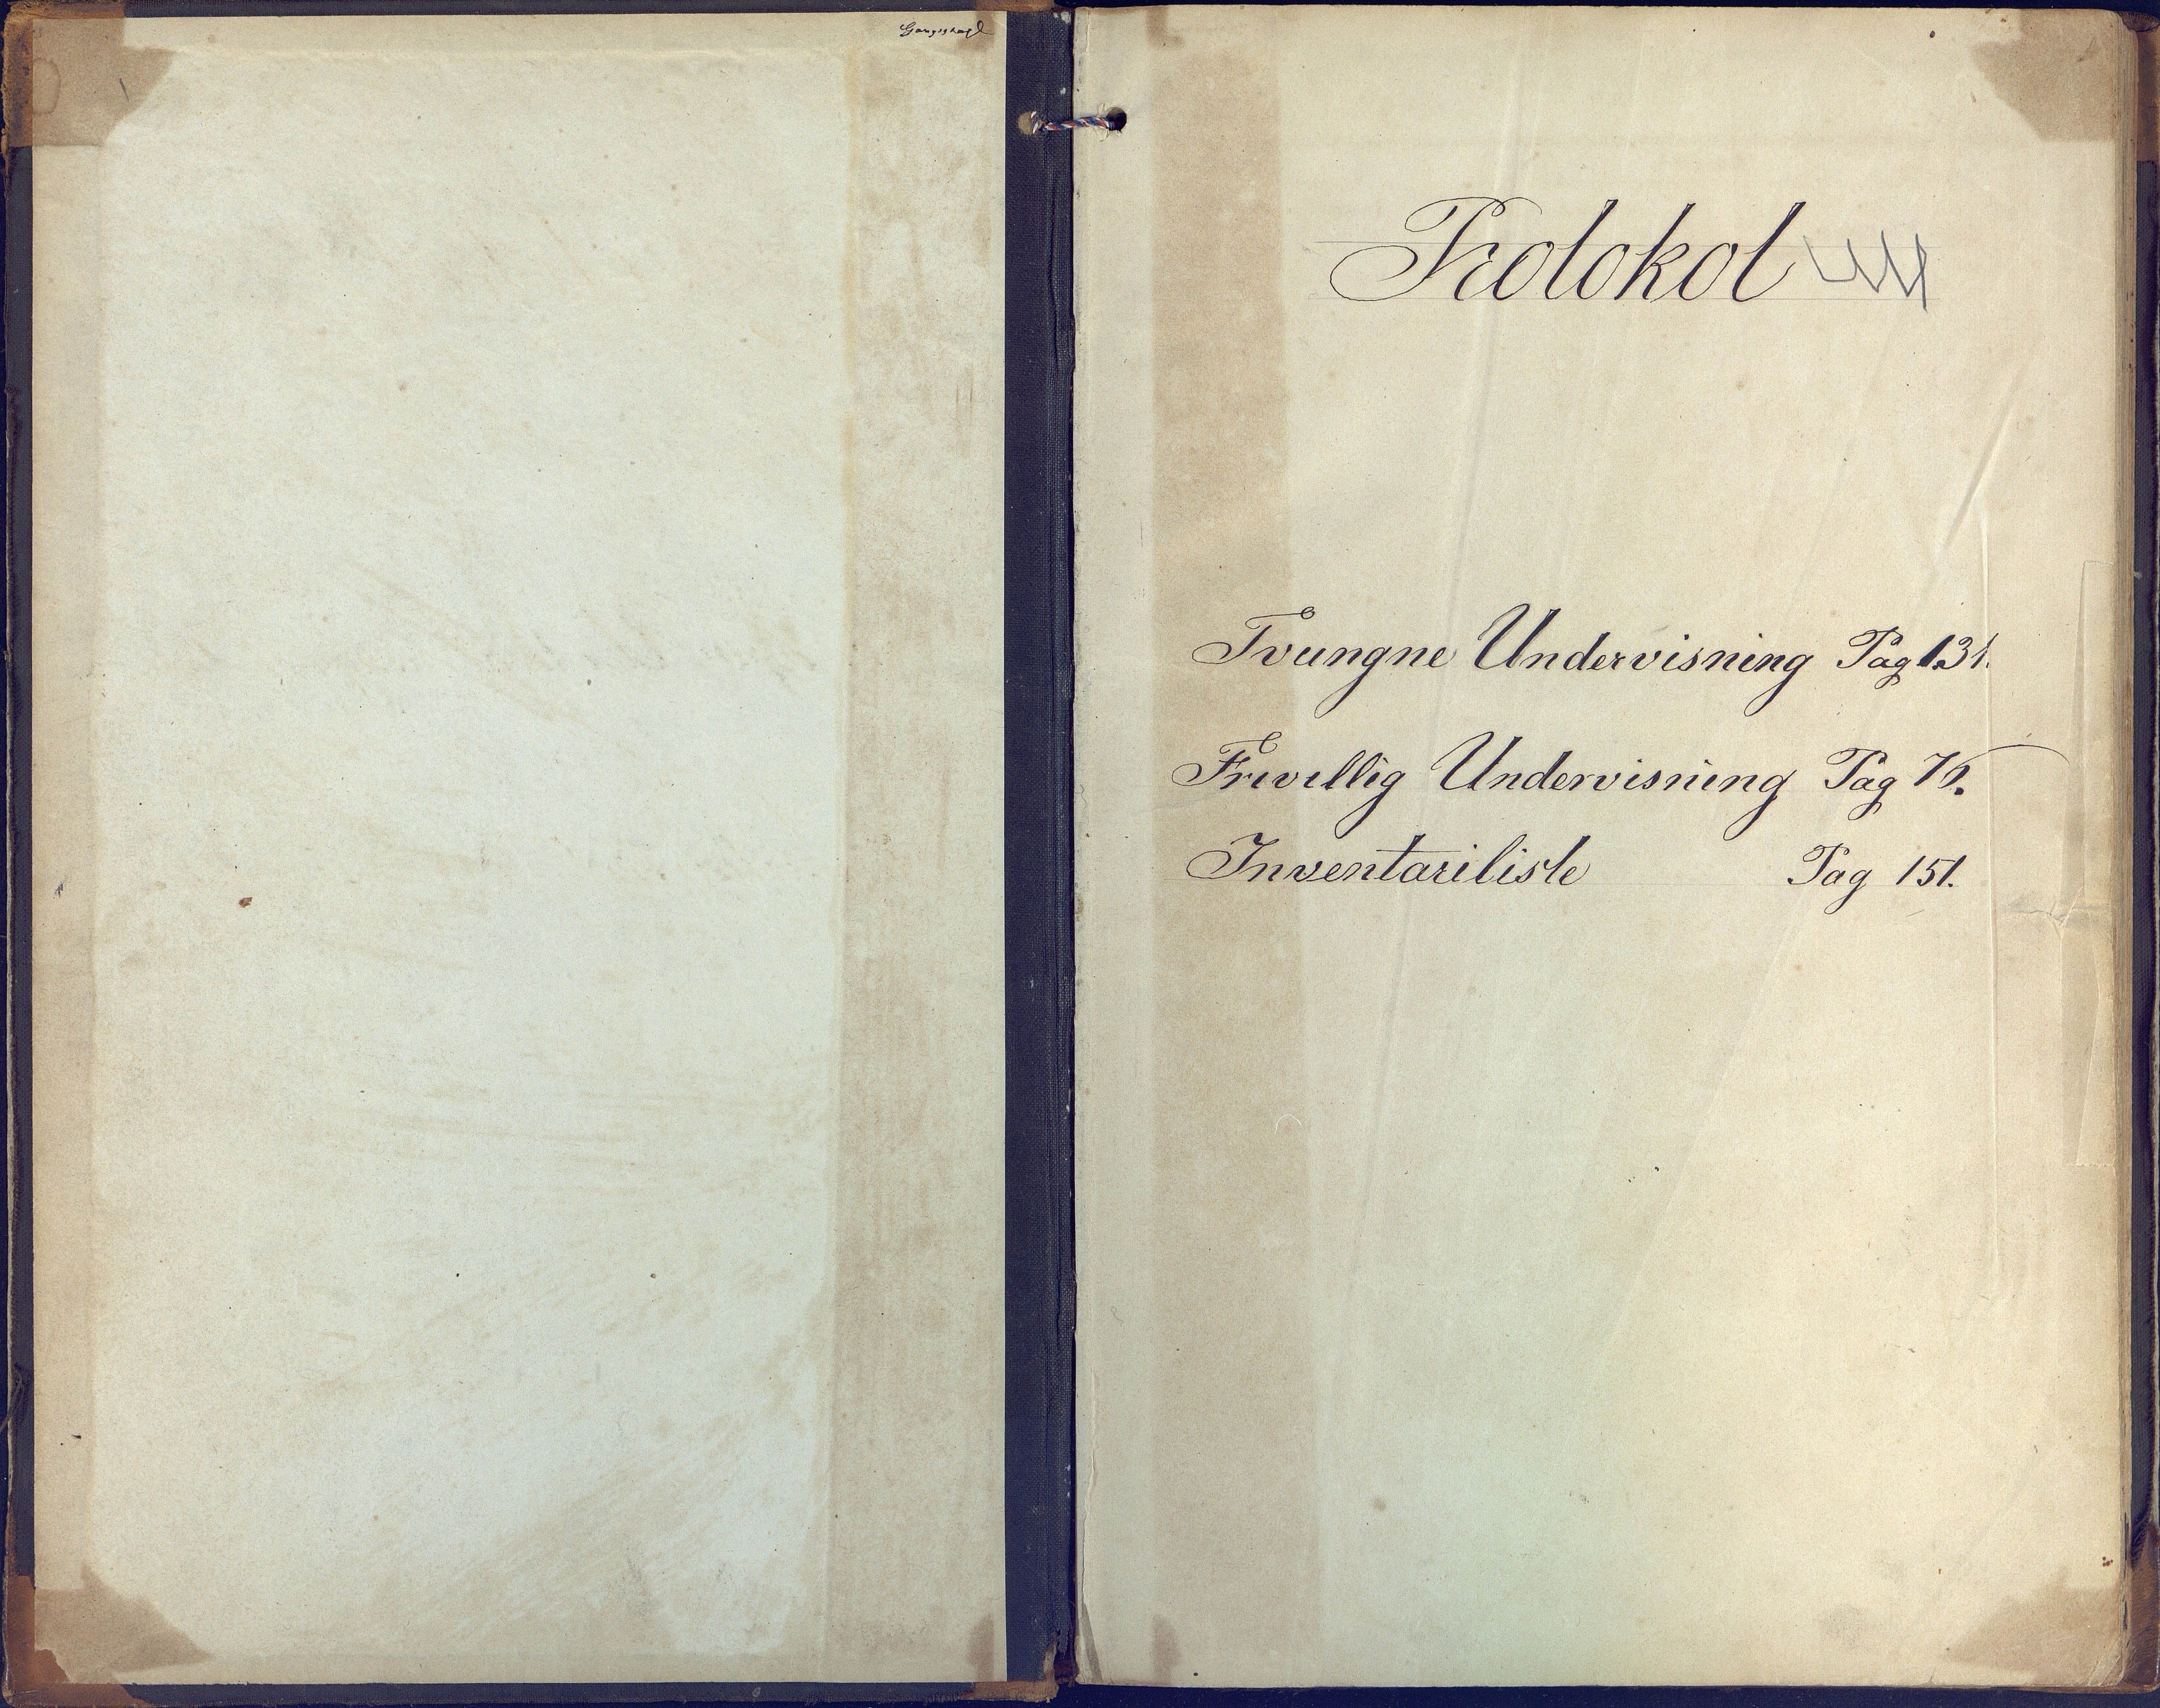 Protokol
Tvungne Undervisning Pag 131.
Frivillig Undervisning Pag
Inventariliste Pag 151.